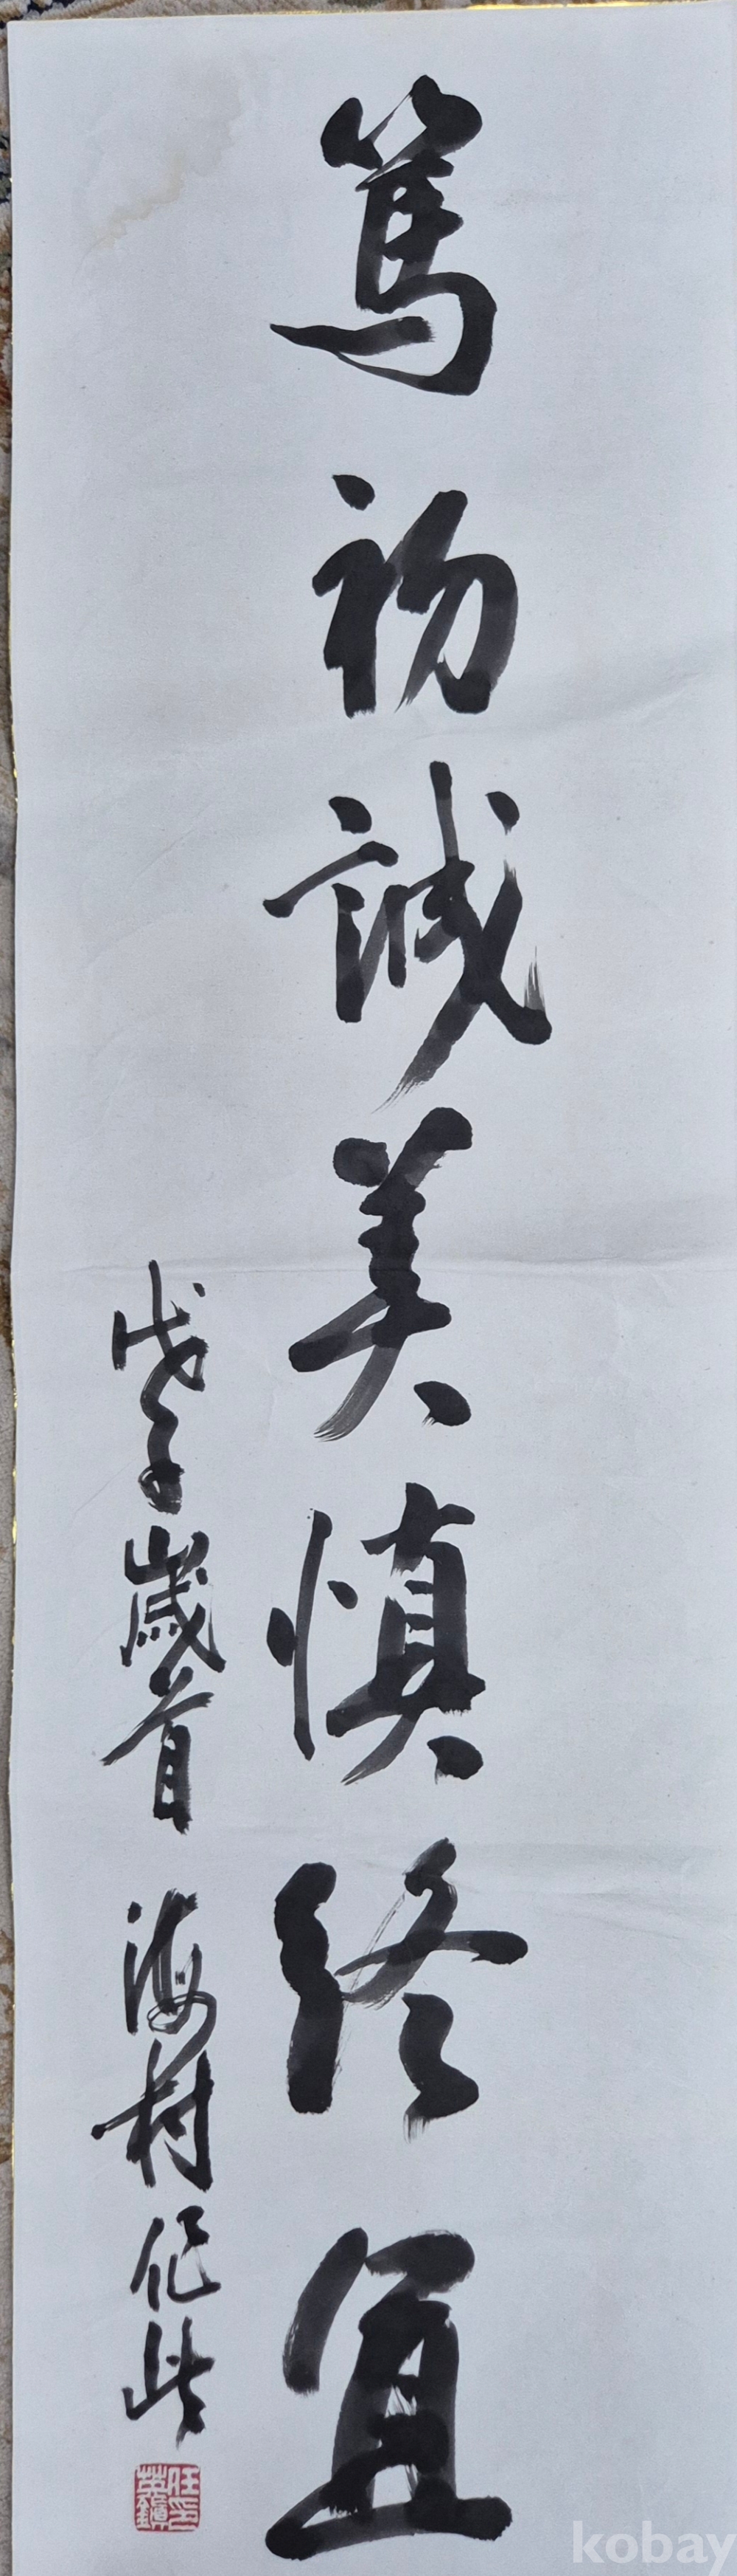 篤初誠美慎終宜
戊子歲首 海村作此
kobay